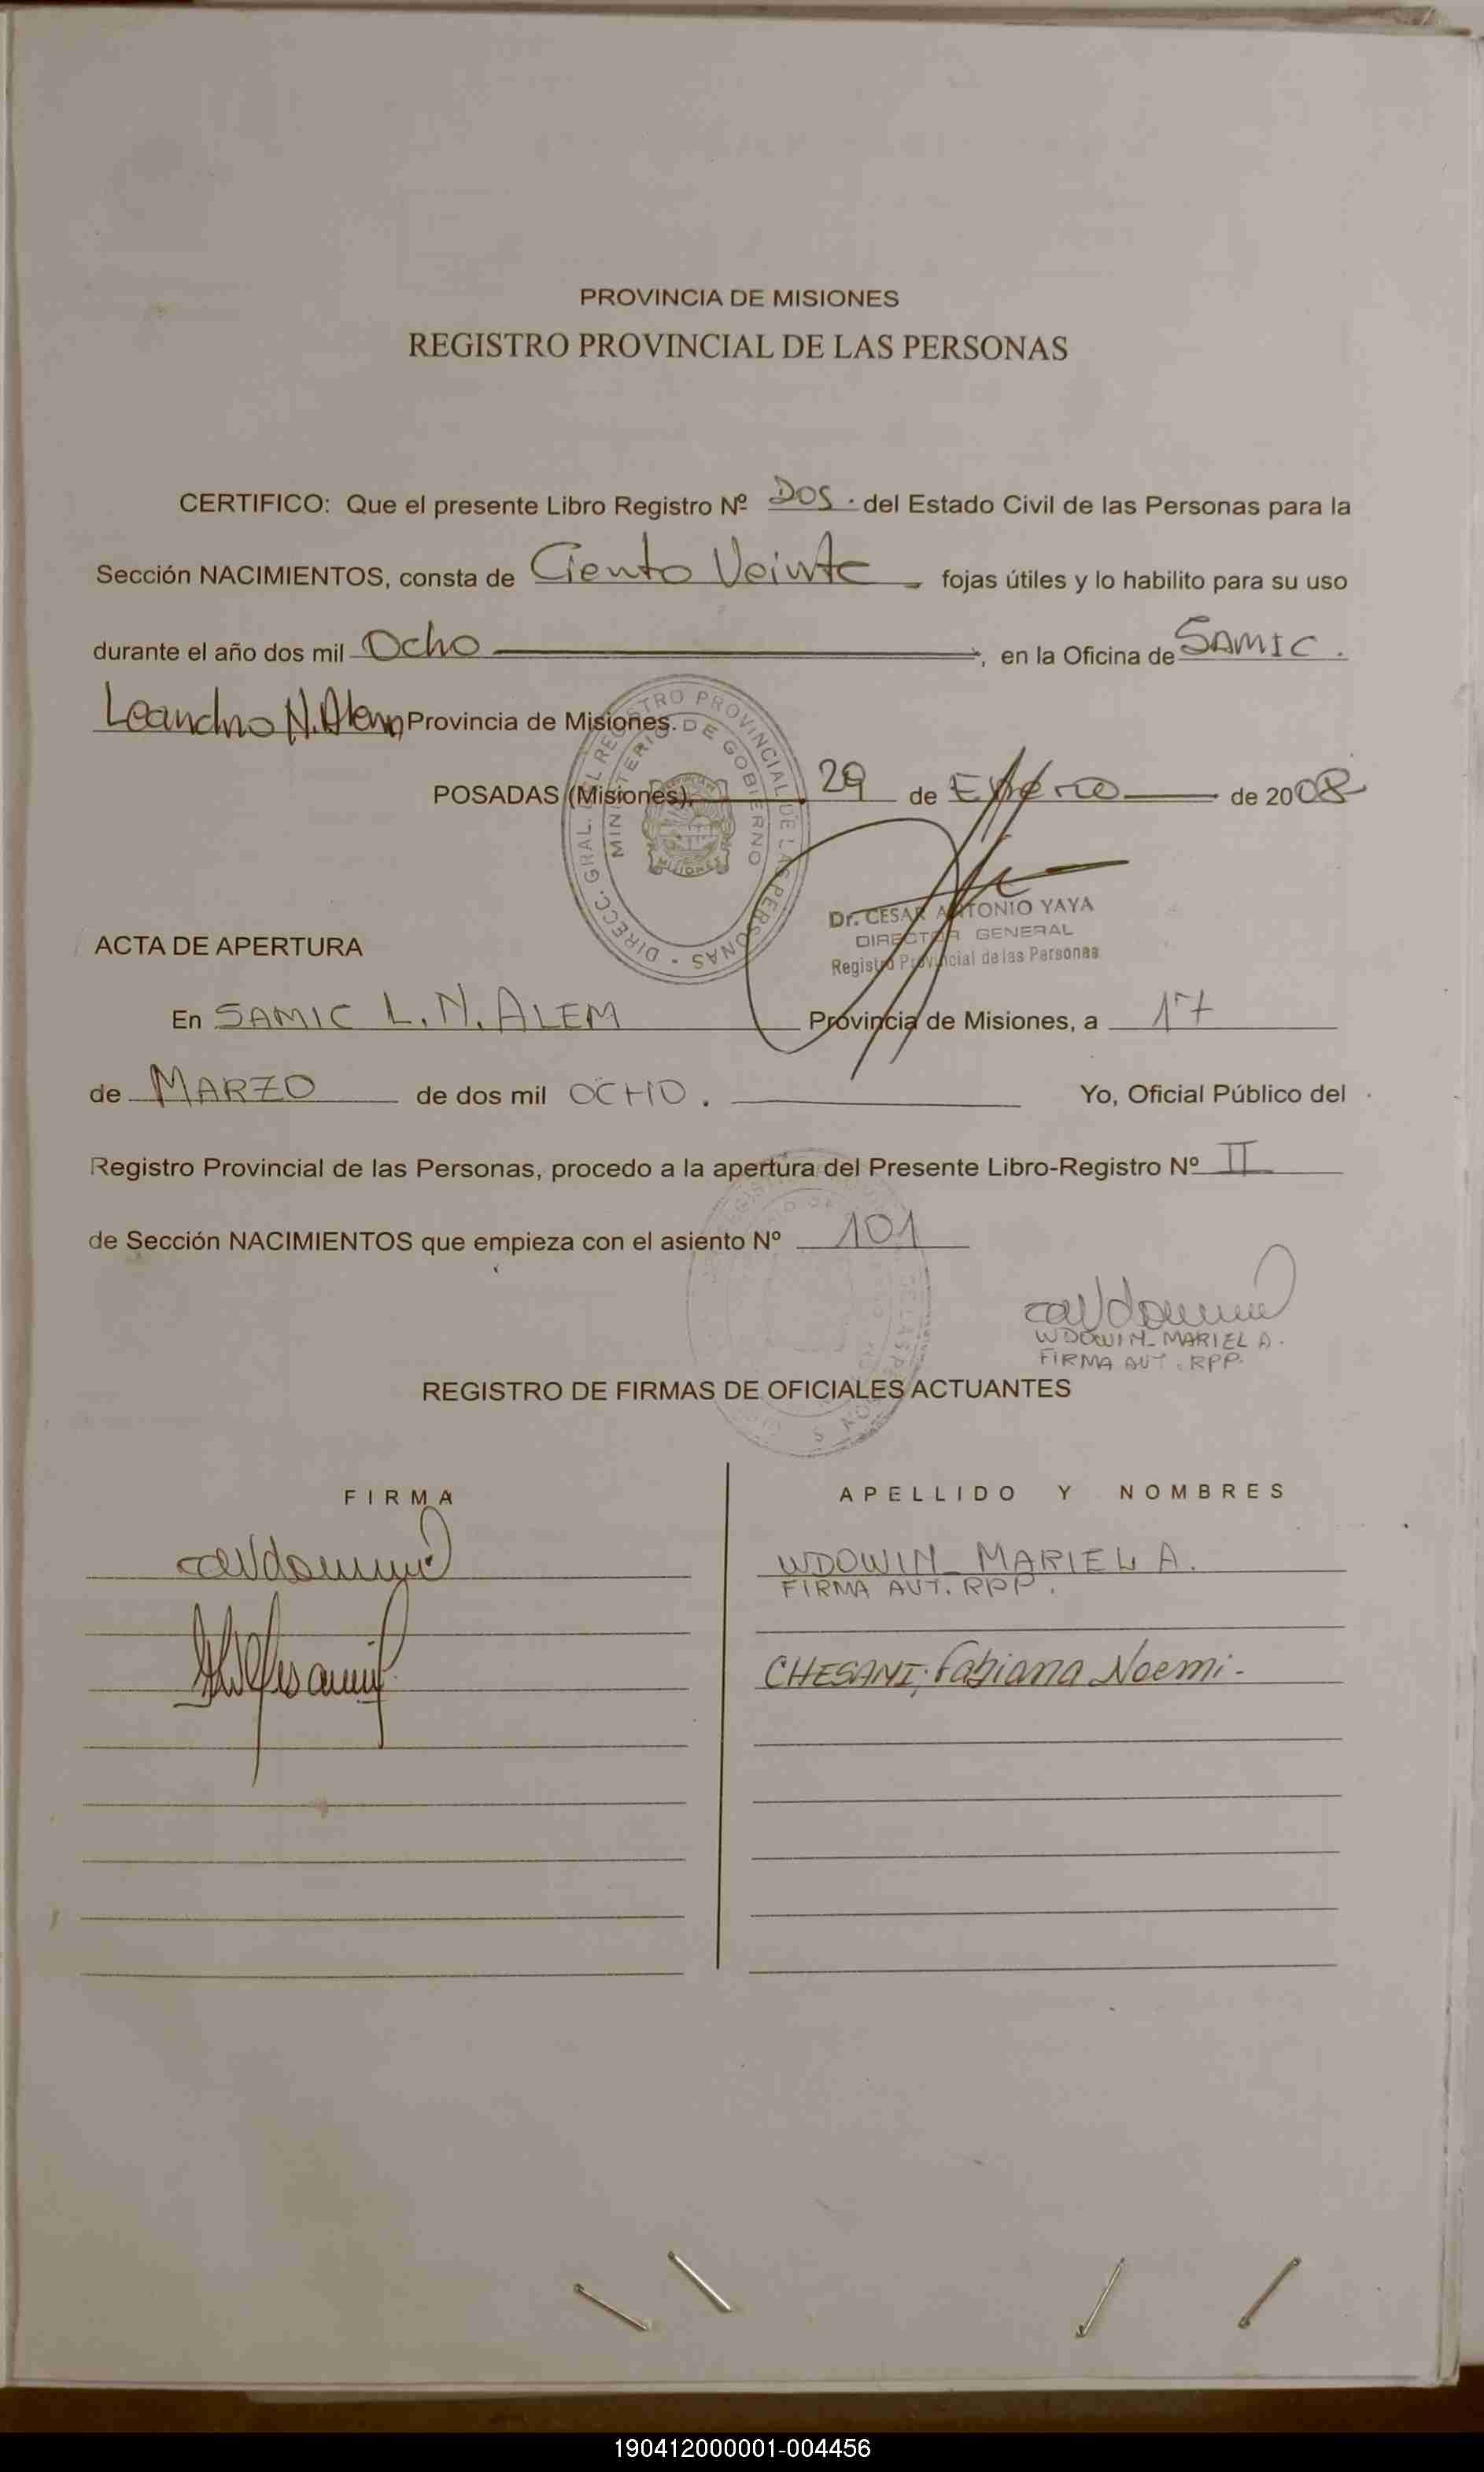 PROVINCIA DE MISIONES
REGISTRO PROVINCIAL DE LAS PERSONAS
CERTIFICO: Que el presente Libro Registro Nº Dos . del Estado Civil de las Personas para la
Sección NACIMIENTOS, consta de Ciento Veinte fojas útiles y lo habilito para su uso
durante el año dos mil Ocho, en la Oficina de SAMIC.
Leandro N. Alem Provincia de Misiones.
POSADAS (Misiones), 29 de Enero de 2008
DIRECC. GRAL. DEL REGISTRO PROVINCIAL DE LAS PERSONAS
MINISTERIO DE GOBIERNO
PROVINCIA
MISIONES
Dr. CESAR ANTONIO YAYA
DIRECTOR GENERAL
Registro Provincial de las Personas
ACTA DE APERTURA
En SAMIC L. N. ALEM Provincia de Misiones, a 17
de MARZO de dos mil OCHO. Yo, Oficial Público del
Registro Provincial de las Personas, procedo a la apertura del Presente Libro-Registro Nº II
de Sección NACIMIENTOS que empieza con el asiento Nº 101
WDOWIN MARIEL A.
FIRMA AUT. RPP.
REGISTRO DE FIRMAS DE OFICIALES ACTUANTES
FIRMA APELLIDO Y NOMBRES
WDOWIN MARIEL A.
FIRMA AUT. RPP.
CHESANI, Fabiana Noemi.
190412000001-004456